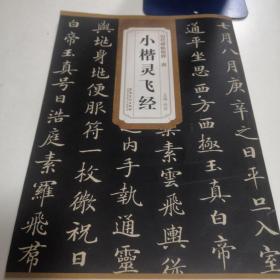 七月八月庚辛之日平旦入
平坐思西方西極玉真白帝
素雲飛輿從
小楷灵飞经
之内手執通靈
身地便服符一枚微祝曰
白帝玉真号曰浩庭素羅飛羣